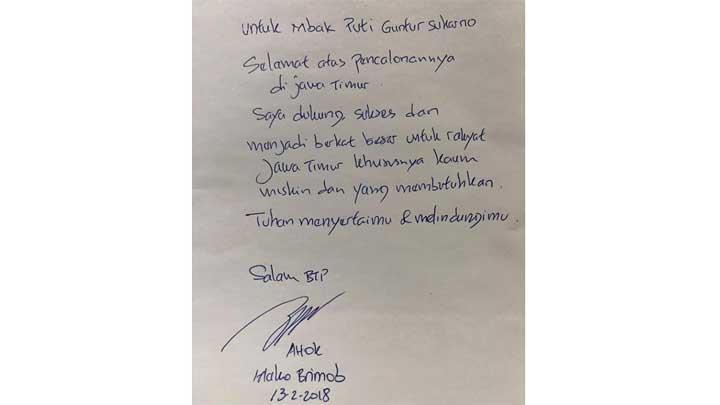 untuk Mbak Puti Guntur Sukarno
Selamat atas Pencalonannya
di Jawa Timur.
Saya dukung, sukses dan
menjadi berkat besar untuk rakyat
Jawa Timur khususnya kaum
miskin dan yang membutuhkan.
Tuhan menyertaimu & melindungimu.
Salam BTP
AHOK
Mako Brimob
13-2-2018